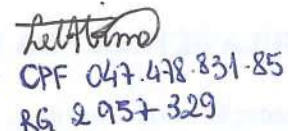 CPF 047.478.831-85
RG 2957329